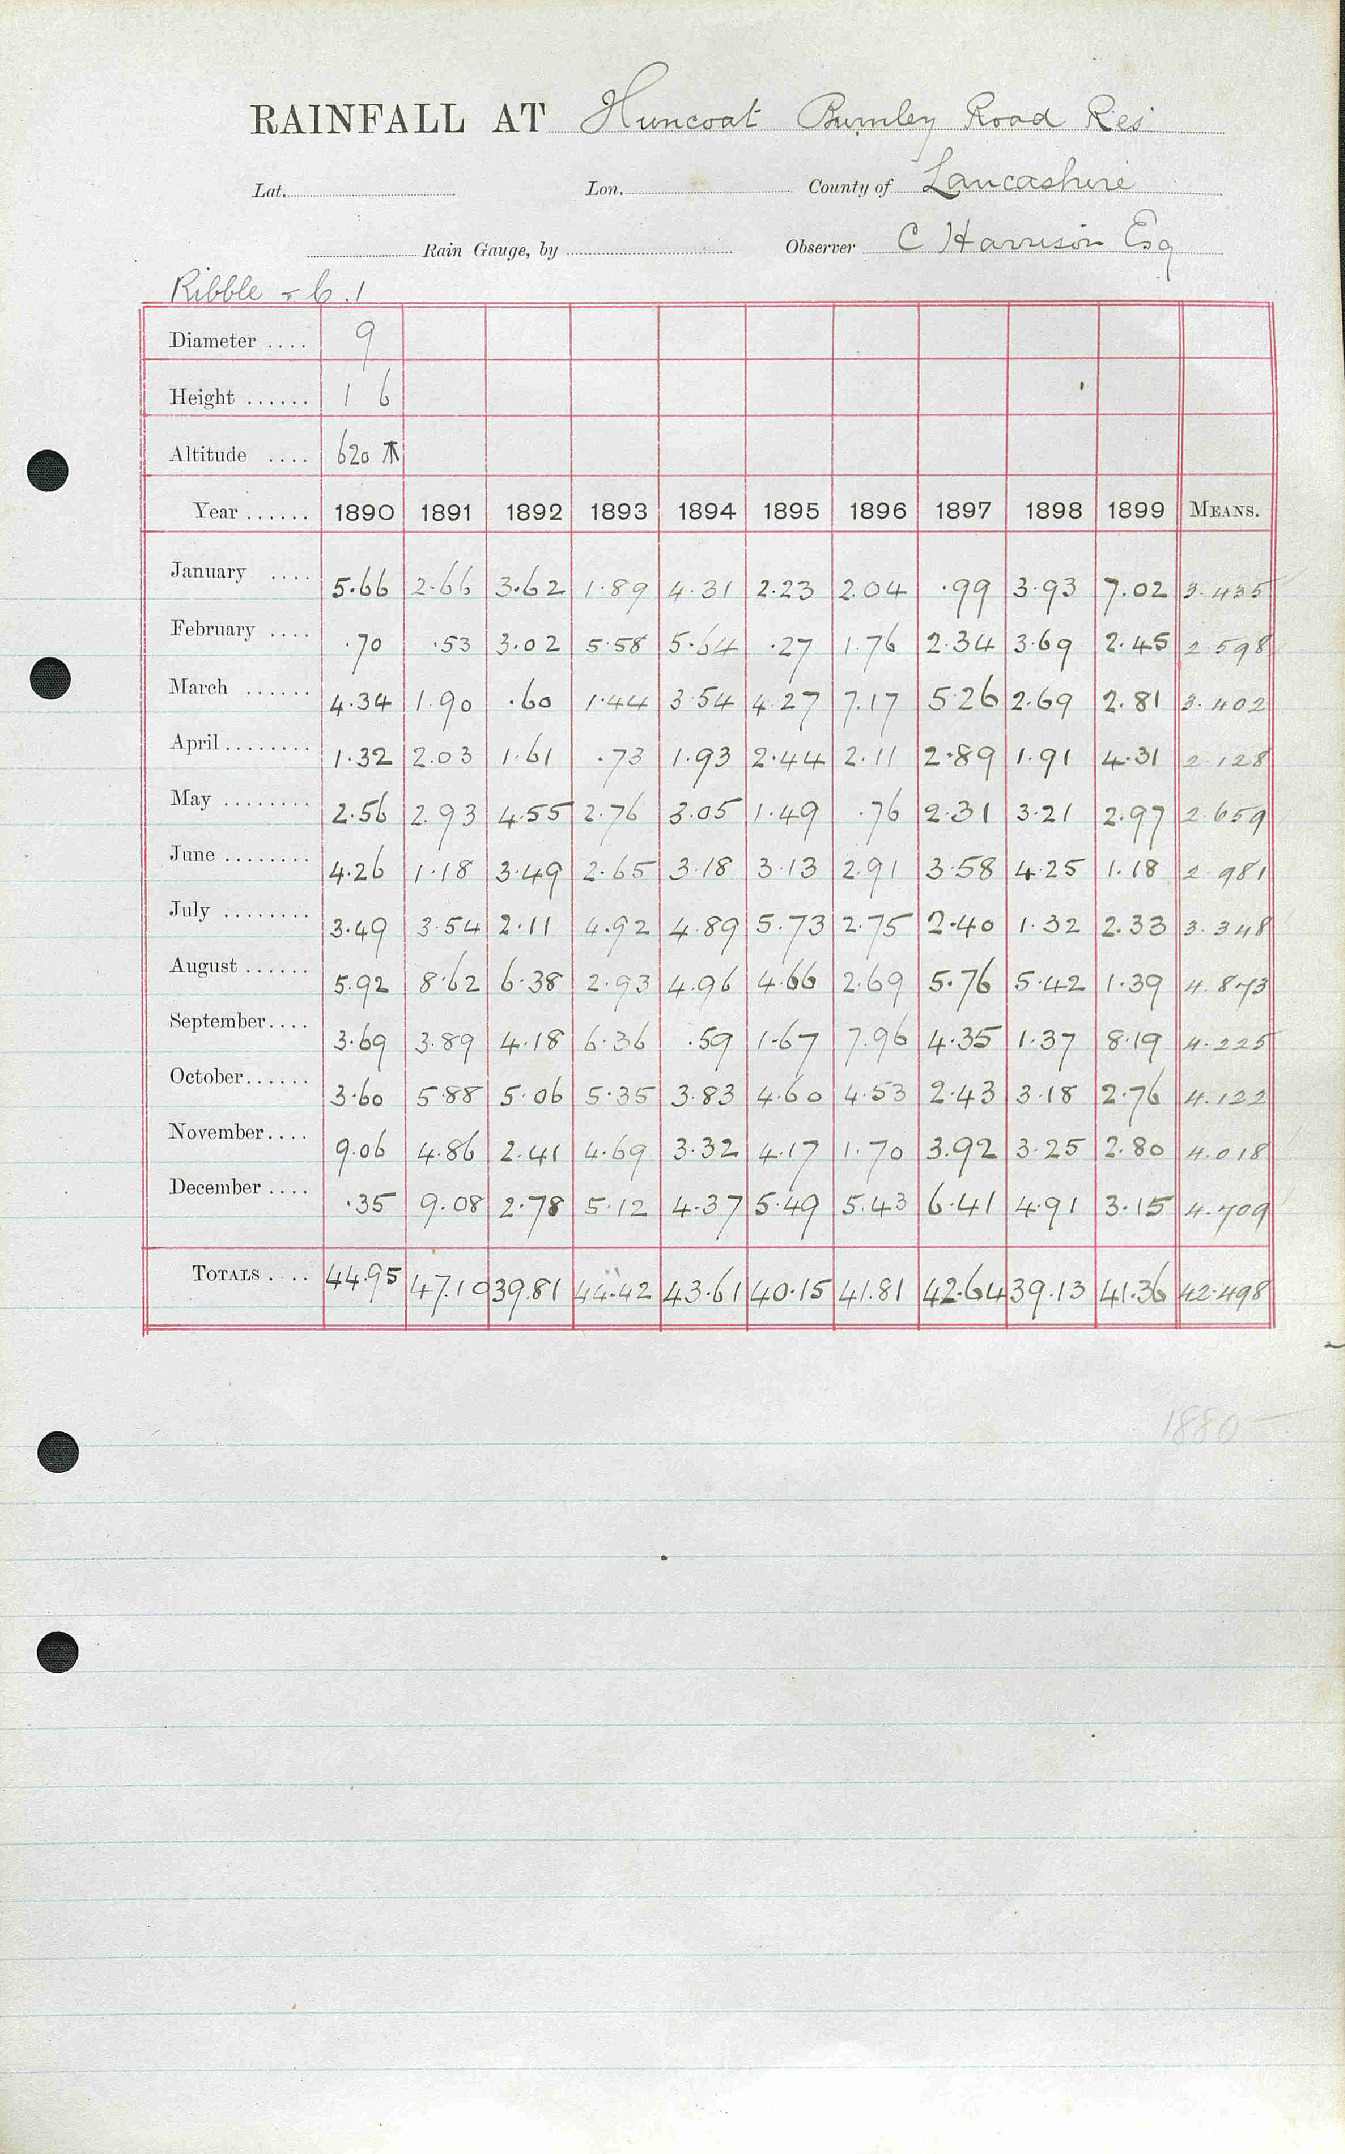 RAINFALL AT Huncoat Burnley Road Res
Lat. Lon. County of Lancashire
Rain Gauge, by Observer C Harrison Esq
Ribble - 6.1
Diameter .... 9
Height ...... 1 6
Altitude .... 620
Year ...... 1890 1891 1892 1893 1894 1895 1896 1897 1898 1899 MEANS.
January .... 5.66 2.66 3.62 1.89 4.31 2.23 2.04 .99 3.93 7.02 3.435
February .... .70 .53 3.02 5.58 5.64 .27 1.76 2.34 3.69 2.45 2.598
March ...... 4.34 1.90 .60 1.44 3.54 4.27 7.17 5.26 2.69 2.81 3.402
April ........ 1.32 2.03 1.61 .73 1.93 2.44 2.11 2.89 1.91 4.31 2.128
May ........ 2.56 2.93 4.55 2.76 3.05 1.49 .76 2.31 3.21 2.97 2.659
June ........ 4.26 1.18 3.49 2.65 3.18 3.13 2.91 3.58 4.25 1.18 2.981
July ........ 3.49 3.54 2.11 4.92 4.89 5.73 2.75 2.40 1.32 2.33 3.348
August ...... 5.92 8.62 6.38 2.93 4.96 4.66 2.69 5.76 5.42 1.39 4.873
September.... 3.69 3.89 4.18 6.36 .59 1.67 7.96 4.35 1.37 8.19 4.225
October...... 3.60 5.88 5.06 5.35 3.83 4.60 4.53 2.43 3.18 2.76 4.122
November.... 9.06 4.86 2.41 4.69 3.32 4.17 1.70 3.92 3.25 2.80 4.018
December .... .35 9.08 2.78 5.12 4.37 5.49 5.43 6.41 4.91 3.15 4.709
TOTALS .... 44.95 47.10 39.81 44.42 43.61 40.15 41.81 42.64 39.13 41.36 42.498
1880 -